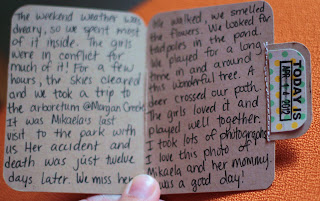 The weekend weather was
dreary, so we spent most
of it inside. The girls
were in conflict for
much of it! For a few
hours, the skies cleared
and we took a trip to
the arboretum @Morgan Creek.
It was Mikaela's last
visit to the park with
us. Her accident and
death was just twelve
days later. We miss her
We walked, we smelled
the flowers. We looked for
tadpoles in the pond.
We played for a long
time in and around
this wonderful tree. A
deer crossed our path.
The girls loved it and
played well together.
I took lots of photographs.
I love this photo of
Mikaela and her mommy.
was a good day!
TODAY IS
APR